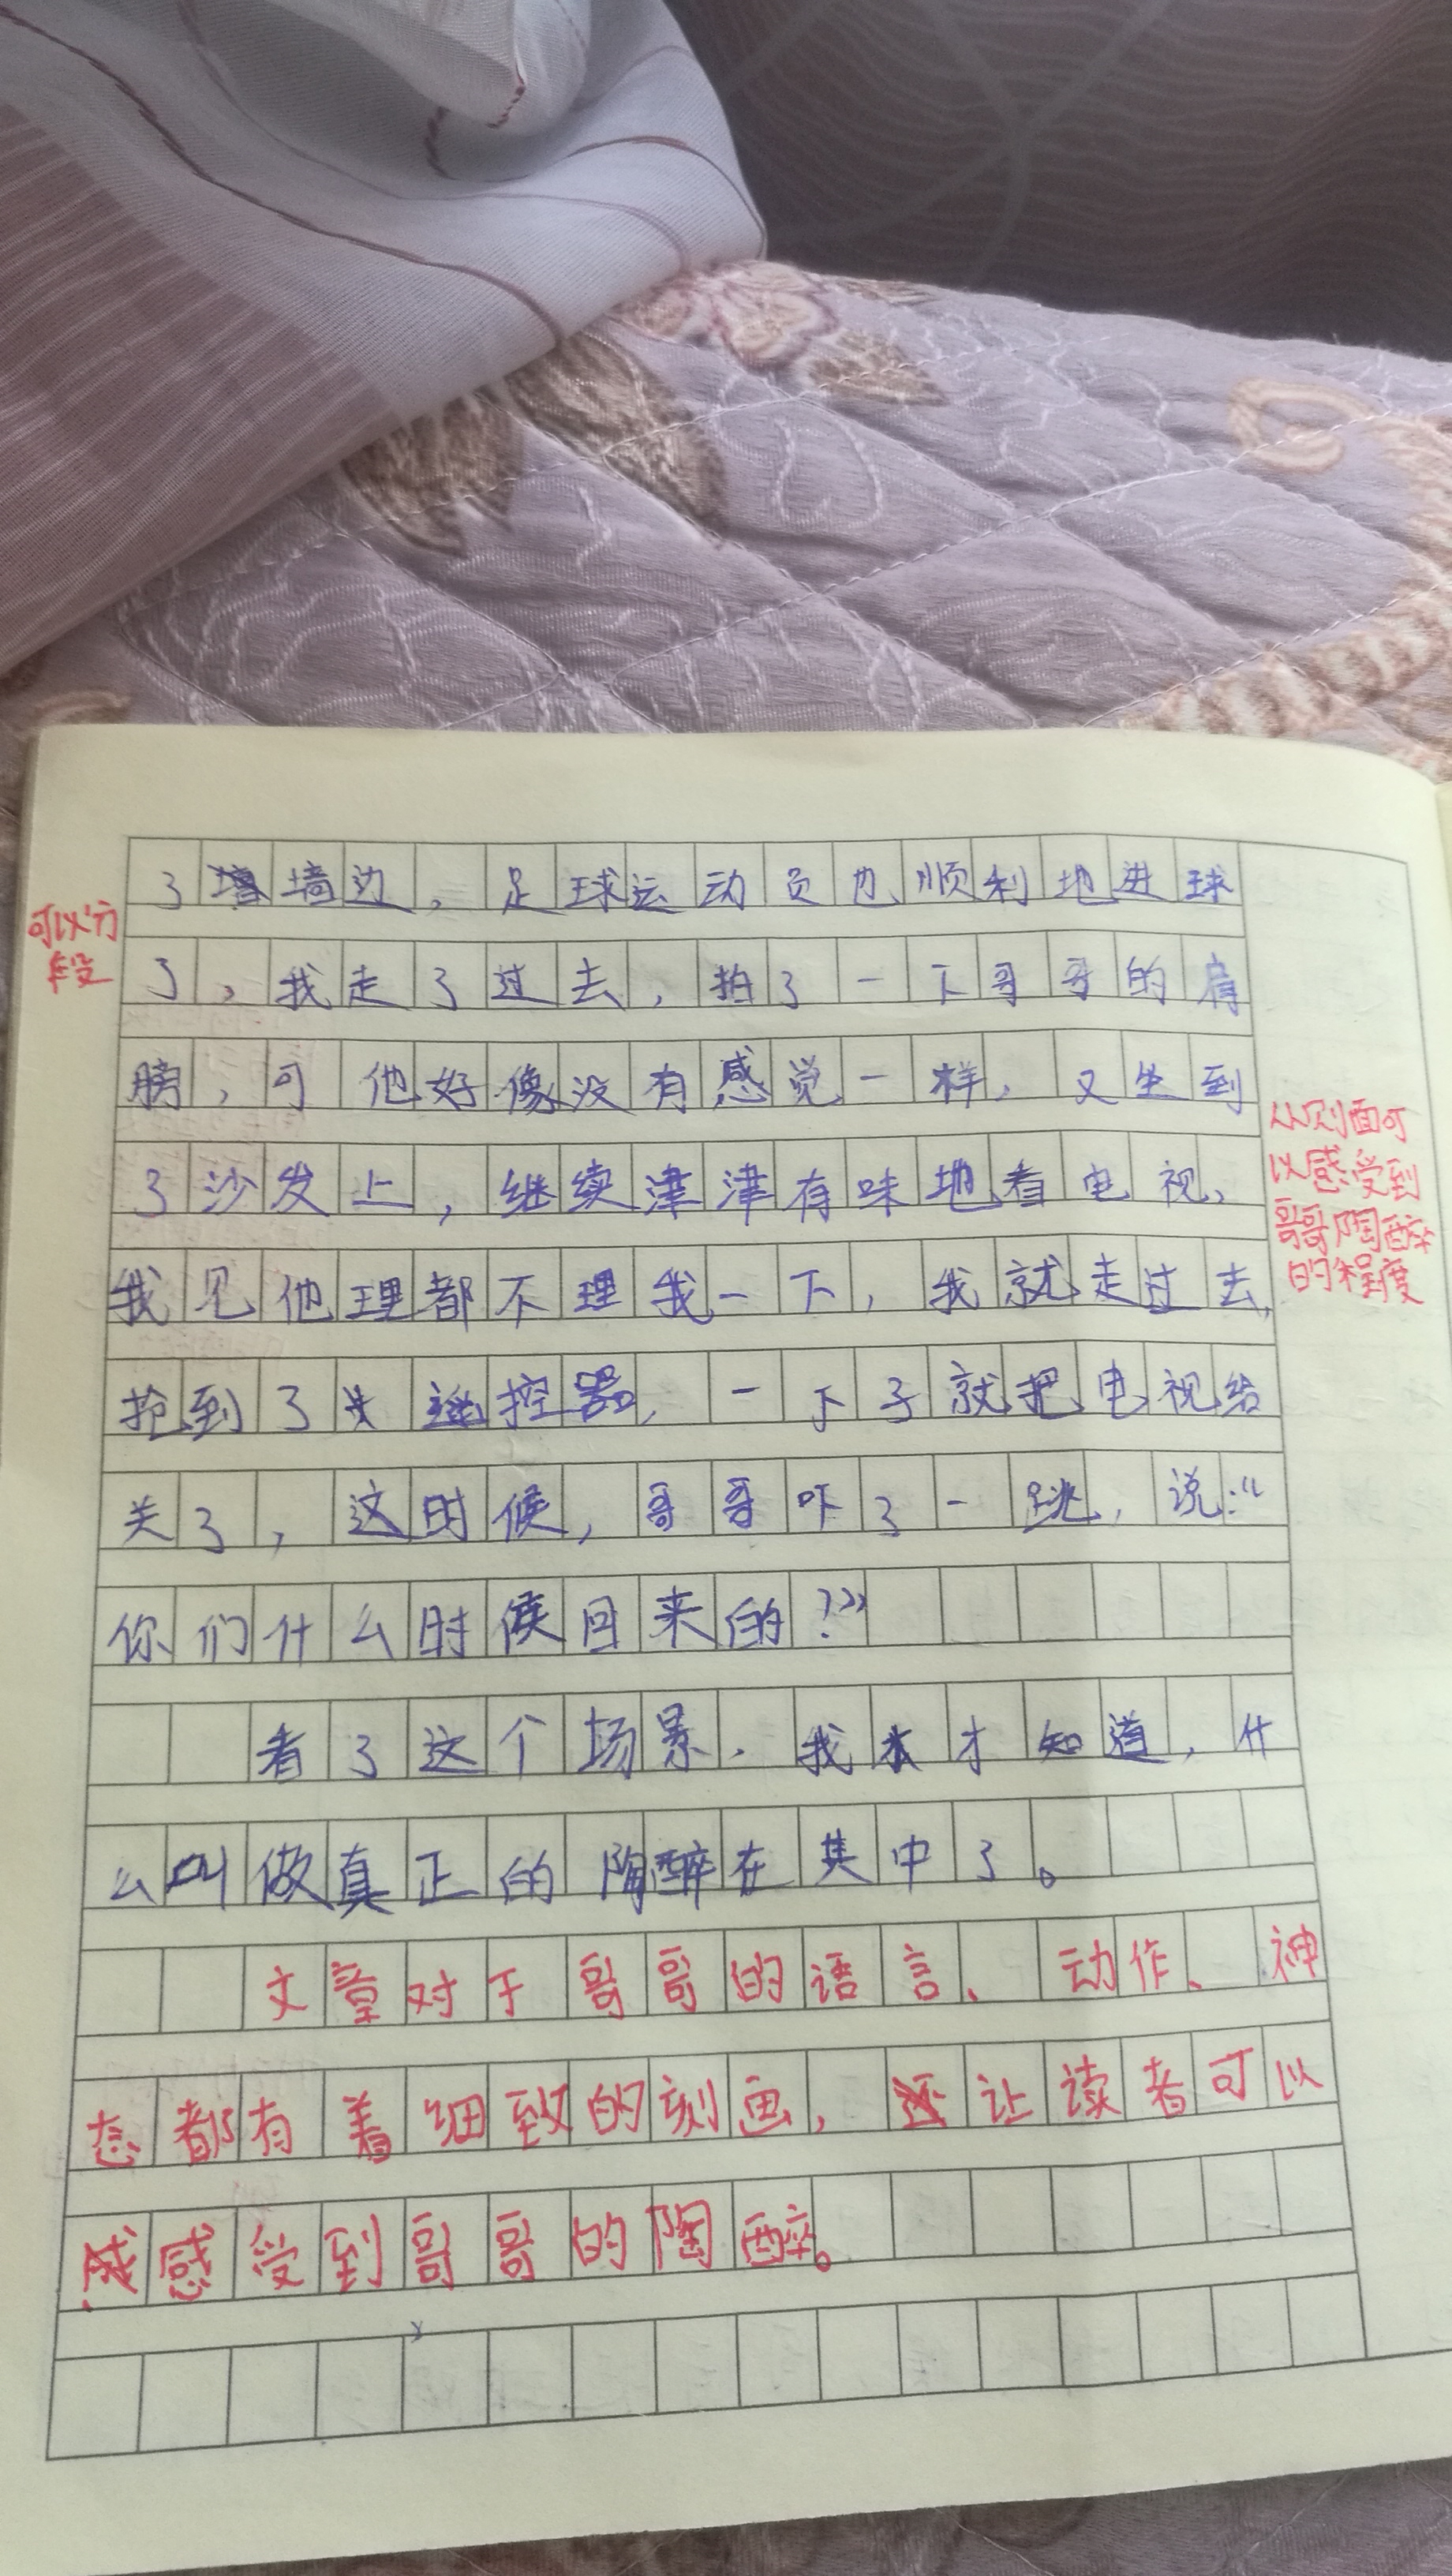 了墙边，足球运动员也顺利地进球
可以分
段
了，我走了过去，拍了一下哥哥的肩
膀，可他好像没有感觉一样，又坐到
了沙发上，继续津津有味地看电视，
从侧面可
以感受到
哥哥陶醉
的程度
我见他理都不理我一下，我就走过去，
抢到了遥控器，一下子就把电视给
关了，这时候，哥哥吓了一跳，说：“
你们什么时候回来的？”
看了这个场景，我才知道，什
么叫做真正的陶醉在其中了。
文章对于哥哥的语言、动作、神
态都有着细致的刻画，让读者可以
感受到哥哥的陶醉。